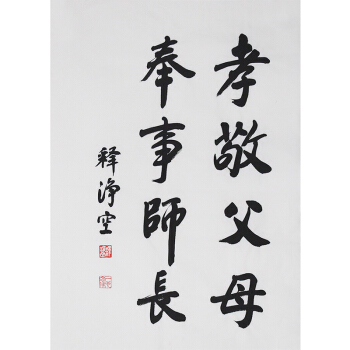 孝敬父母
奉事師長
釋淨空